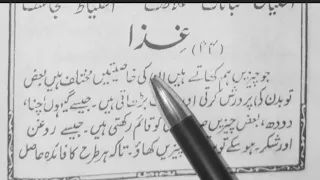 غذا
(۴۴)
جو چیزیں ہم کھاتے ہیں کی خاصیتیں مختلف ہیں بعض
تو بدن کی پرورش کرتی اور بڑھاتی ہیں۔ جیسے گیہوں، چنا،
دودھ، بعض چیزیں کو قائم رکھتی ہیں۔ جیسے روغن
اور شکر۔ ہو سکے تو چیزیں کھاؤ۔ تاکہ ہر طرح کا فائدہ حاصل